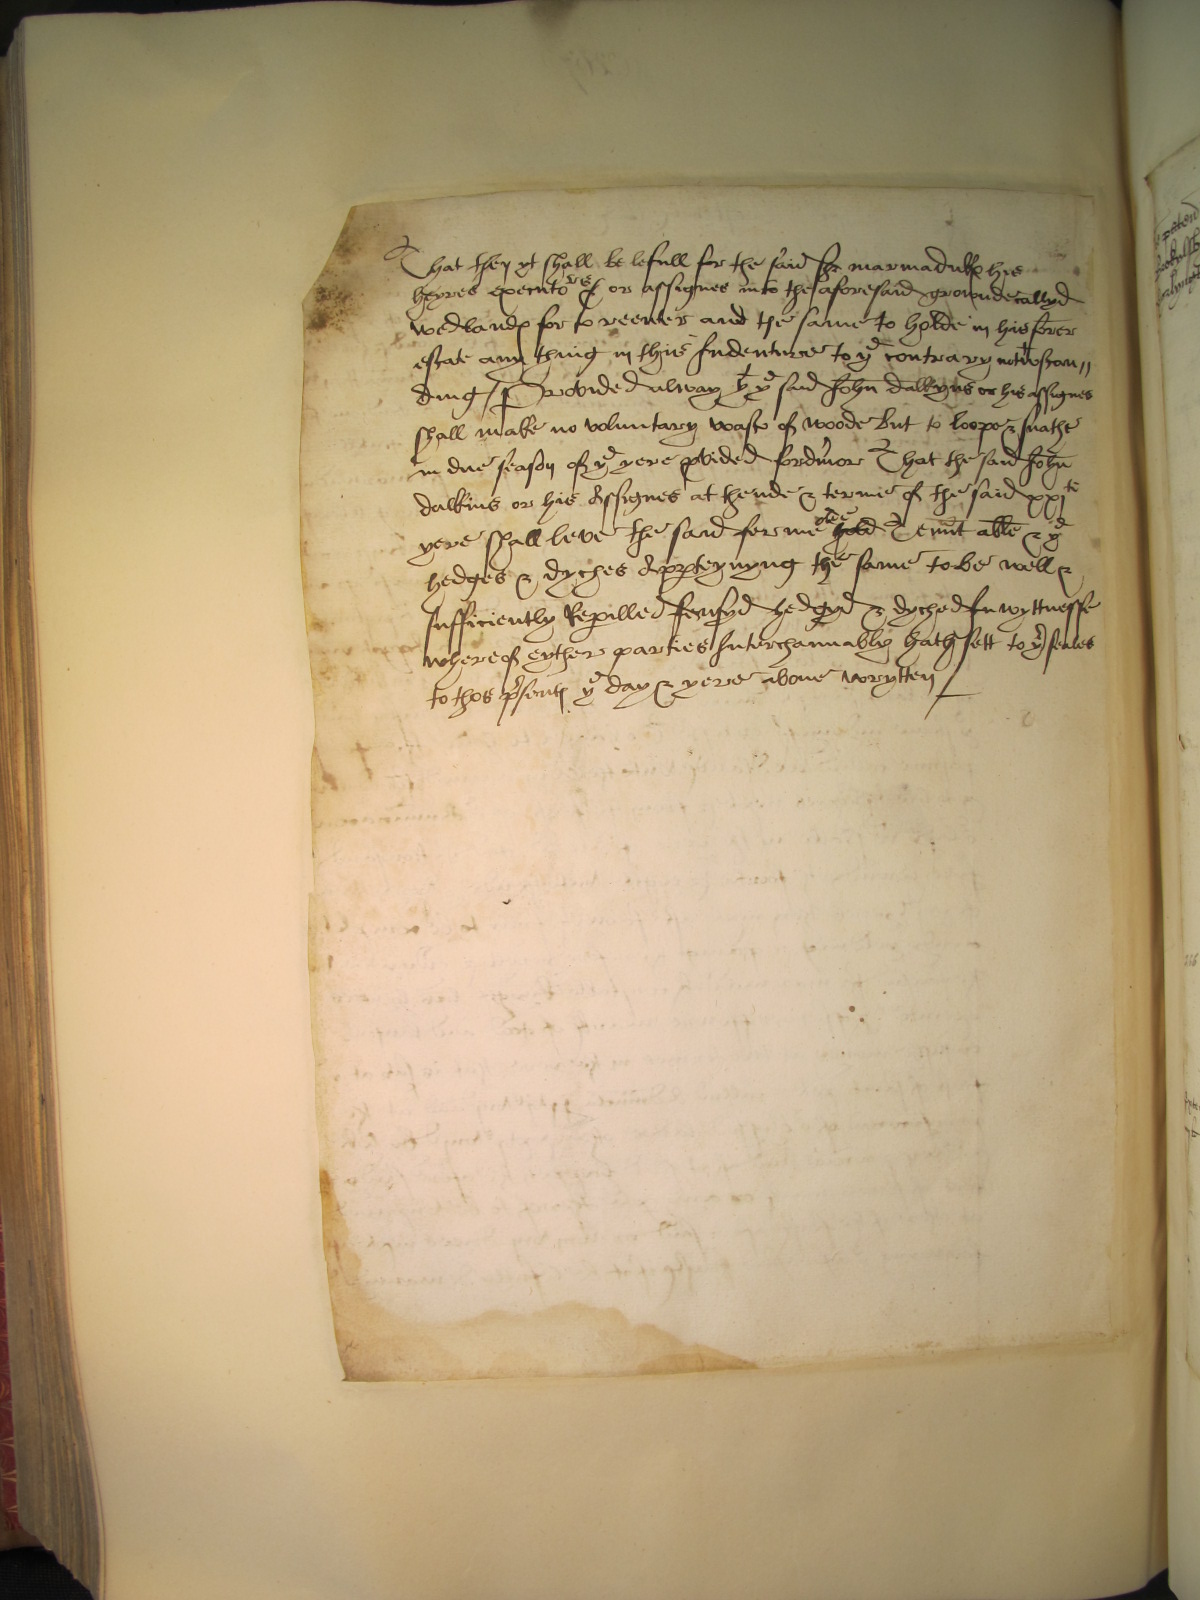 That then yt shall be lefull for the said Sr marmaduke his
heyres executors or assignes into the aforesaid grownde callyd
wedlands for to reenter and the same to holde in his former
estate any thing in this Indenture to ye contrary notwtstan//
ding / Provided alway yt ye said John dalkyns or his assignes
shall make no voluntary wast of woode But to loope & snathe
in due season of ye yere pvided fordmor That the said John
dalkins or his Assignes at thende & terme of the said xxjte
yere shall leve the said ferme holde Tenntable & ye
hedges & dyches Apperteynyng the same to be well &
sufficiently Repilled fensyd hedgyd & dyched In wyttnesse
whereof eyther parties Interchaunably hath sett to yr seales
to thes psents ye day & yere above wrytten